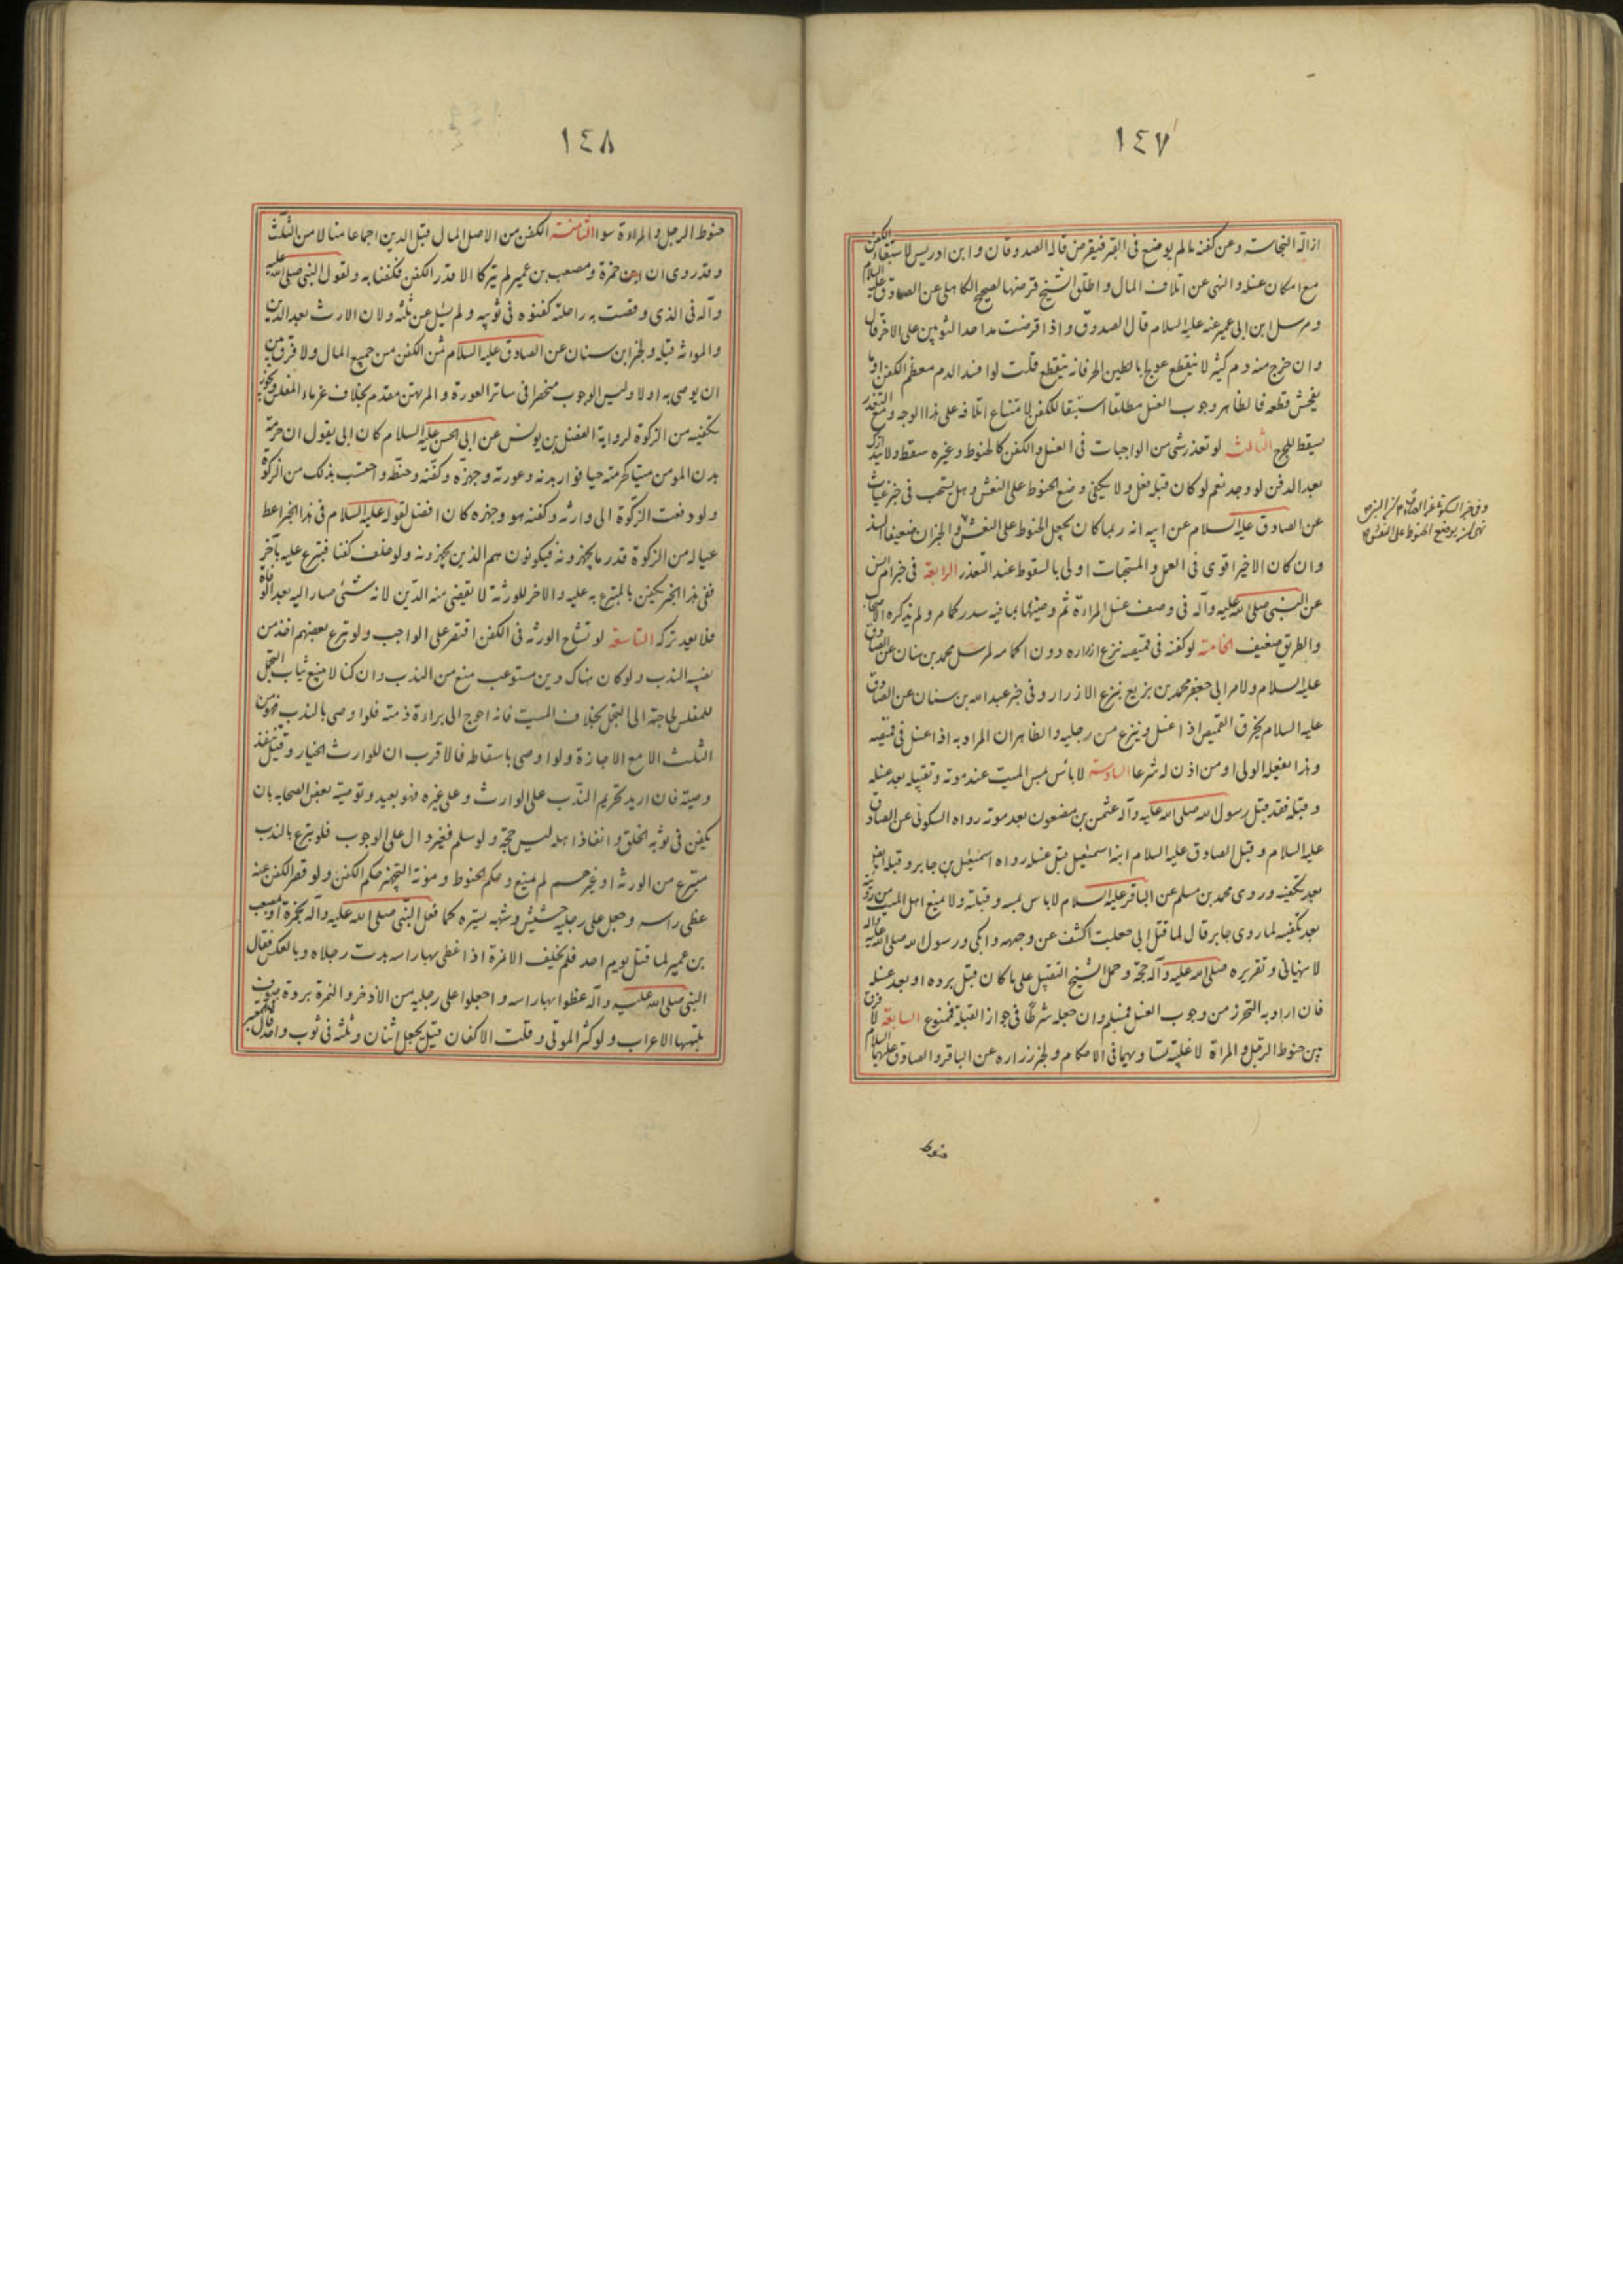 ١٤٧
ازالة النجاسة وعن كفنه مالم يوضع فى القبر فيقرض قاله الصدوقان وابن ادريس لاستبقاء الكفن
مع امكان غسله والنهى عن اتلاف المال واطلق الشيخ قرضها لصحيح الكاهلى عن الصادق عليه السلام
ومرسل ابن ابى عمير عنه عليه السلام قال الصدوق واذا قرضت مد احد الثوبين على الاخر قال
وان خرج منه دم كثير لا ينقطع عولج بالطين الحر فانه ينقطع قلت لو افسد الدم معظم الكفن او ما
يفحش قطعه فالظاهر وجوب الغسل مطلقا استبقا للكفن لامتناع اتلافه على هذا الوجه ومع التعذر
يسقط للحرج الثالث لو تعذر شى من الواجبات فى الغسل والكفن كالحنوط وغيره سقط ولا يتدارك
بعد الدفن لو وجد نعم لو كان قبله فعل ولا يكفى وضع الحنوط على النعش وهل يستحب فى خبر غياث
عن الصادق عليه السلام عن ابيه انه ربما كان يجعل الحنوط على النعش والخبران ضعيفا السند
وان كان الاخير اقوى فى العمل والمستحبات اولى بالسقوط عند التعذر الرابعة فى خبر ام انس
عن النبى صلى الله عليه وآله فى وصف غسل المراة ثم وضيئها بما فيه سدر كما مر ولم يذكره الاصحاب
والطريق ضعيف الخامسة لو كفنه فى قميصه نزع ازراره دون اكمامه لمرسل محمد بن سنان عن الصادق
عليه السلام ولامر ابى جعفر محمد بن بزيع بنزع الازرار وفى خبر عبدالله بن سنان عن الصادق
عليه السلام يخرق القميص اذا غسل وينزع من رجليه والظاهر ان المراد به اذا غسل فى قميصه
وهذا يفعله الولى او من اذن له شرعا السادسة لا باس بمس الميت عند موته وتقبيله بعد غسله
وقبله فقد قبل رسول الله صلى الله عليه وآله عثمن بن مضعون بعد موته رواه السكونى عن الصادق
عليه السلام وقبل الصادق عليه السلام ابنه اسمعيل قبل غسله رواه اسمعيل بن جابر وقبله ايضا
بعد تكفينه وروى محمد بن مسلم عن الباقر عليه السلام لا باس بمسه وقبلته ولا يمنع اهل الميت من رؤيته
بعد تكفينه لما روى جابر قال لما قتل ابى جعلت اكشف عن وجهه وابكى ورسول الله صلى الله عليه واله
لا ينهانى وتقريره صلى الله عليه وآله حجة وحمل الشيخ التقبيل على ما كان قبل برده او بعد غسله
فان اراد به التحرز من وجوب الغسل فمسلم وان جعله شرطا فى جواز القبلة فممنوع السابعة لا فرق
بين حنوط الرجل والمراة لاغلبية تساويهما فى الاحكام ولخبر زراره عن الباقر والصادق عليهما السلام
حنوط
١٤٨
حنوط الرجل والمراة سوا الثامنة الكفن من الاصل المال قبل الدين اجماعا منا لا من الثلث
وقد روى ان حمزة ومصعب بن عمير لم يتركا الا قدر الكفن فكفنا به ولقول النبى صلى الله عليه
وآله فى الذى وقصت به راحلته كفنوه فى ثوبيه ولم يسئل عن ثلثه ولان الارث بعد الدين
والمؤنة قبله ولخبر ابن سنان عن الصادق عليه السلام ثمن الكفن من جميع المال ولا فرق بين
ان يوصى به اولا وليس الوجوب منحصرا فى ساتر العورة والمرتهن مقدم بخلاف غرماء المفلس ويجوز
تكفينه من الزكوة لرواية الفضل بن يونس عن ابى الحسن عليه السلام كان ابى يقول ان حرمة
بدن المومن ميتا كحرمته حيا فوار بدنه وعورته وجهزه وكفنه وحنطه واحتسب بذلك من الزكوة
ولو دفعت الزكوة الى وارثه وكفنه هو وجهزه كان افضل لقوله عليه السلام فى هذا الخبر اعط
عياله من الزكوة قدر ما يجهزونه فيكونون هم الذين يجهزونه ولو خلف كفنا فتبرع عليه بآخر
ففى هذا الخبر يكفن بالمتبرع به عليه والاخر للورثة لا يقضى منه الدين لانه شئ صار اليه بعد الوفاة
فلا يعد تركه التاسعة لو تشاح الورثه فى الكفن اقتصر على الواجب ولو تبرع بعضهم اخذ من
نصيبه الندب ولو كان هناك دين مستوعب منع من الندب وان كنا لا نمنع ثياب التجمل
للمفلس لحاجته الى التجمل بخلاف الميت فانه احوج الى براءة ذمته فلو اوصى بالندب فهو من
الثلث الا مع الاجازة ولو اوصى باسقاطه فالاقرب ان للوارث الخيار وقيل تنفذ
وصيته فان اريد تحريم الندب على الوارث وعلى غيره فهو بعيد وتوصية بعض الصحابه بان
يكفن فى ثوبه الخلق وانفاذ اهله ليس حجة ولو سلم فغير دال على الوجوب فلو تبرع بالندب
متبرع من الورثه او غيرهم لم يمنع وحكم الحنوط ومؤنة التجهيز حكم الكفن ولو قصر الكفن عنه
غطى راسه وجعل على رجليه حشيش وشبهه يستره كما فعل النبى صلى الله عليه وآله بحمزة او بمصعب
بن عمير لما قتل يوم احد فلم يخلف الا نمرة اذا غطى بها راسه بدت رجلاه وبالعكس فقال
النبى صلى الله عليه وآله غطوا بها راسه واجعلوا على رجليه من الاذخر والنمرة بردة من صوف
يلبسها الاعراب ولو كثر الموتى وقلت الاكفان قيل يجعل اثنان وثلثه فى ثوب واحد قال فى المعتبر